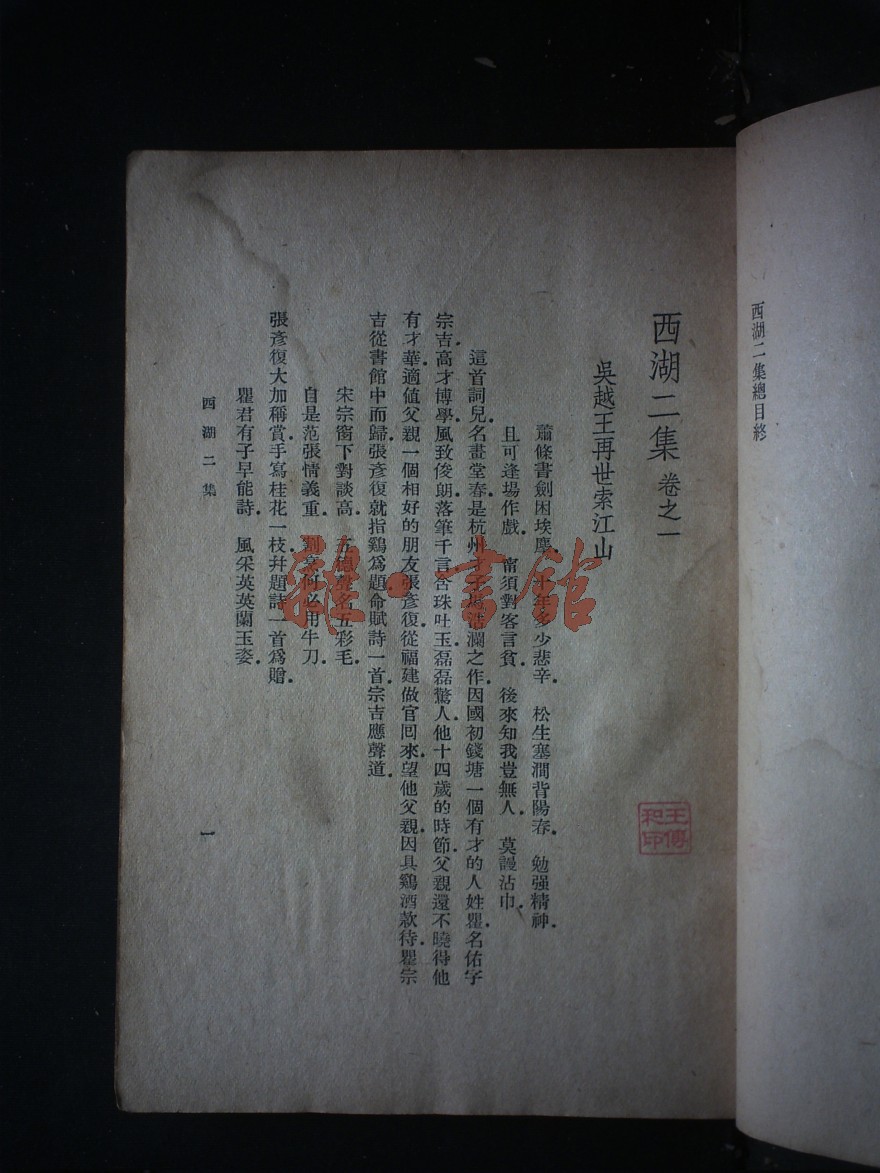 西湖二集總目終
西湖二集 卷之一
吳越王再世索江山
蕭條書劍困埃塵。十年多少悲辛。松生寒澗背陽春。勉强精神。
且可逢場作戲。甯須對客言貧。後來知我豈無人。莫謾沾巾。
這首詞兒名畫堂春。是杭州才子馬浩瀾之作。因國初錢塘一個有才的人姓瞿。名佑字
宗吉。高才博學。風致俊朗。落筆千言。含珠吐玉。磊磊驚人。他十四歲的時節。父親還不曉得他
有才華。適值父親一個相好的朋友張彥復。從福建做官回來。望他父親。因具鷄酒款待。瞿宗
吉從書館中而歸。張彥復就指鷄爲題。命賦詩一首。宗吉應聲道。
宋宗窗下對談高。五德聲名五彩毛。
自是范張情義重。割烹何必用牛刀。
張彥復大加稱賞。手寫桂花一枝。幷題詩一首爲贈。
瞿君有子早能詩。風采英英蘭玉姿。
西湖二集
一
雜·書館